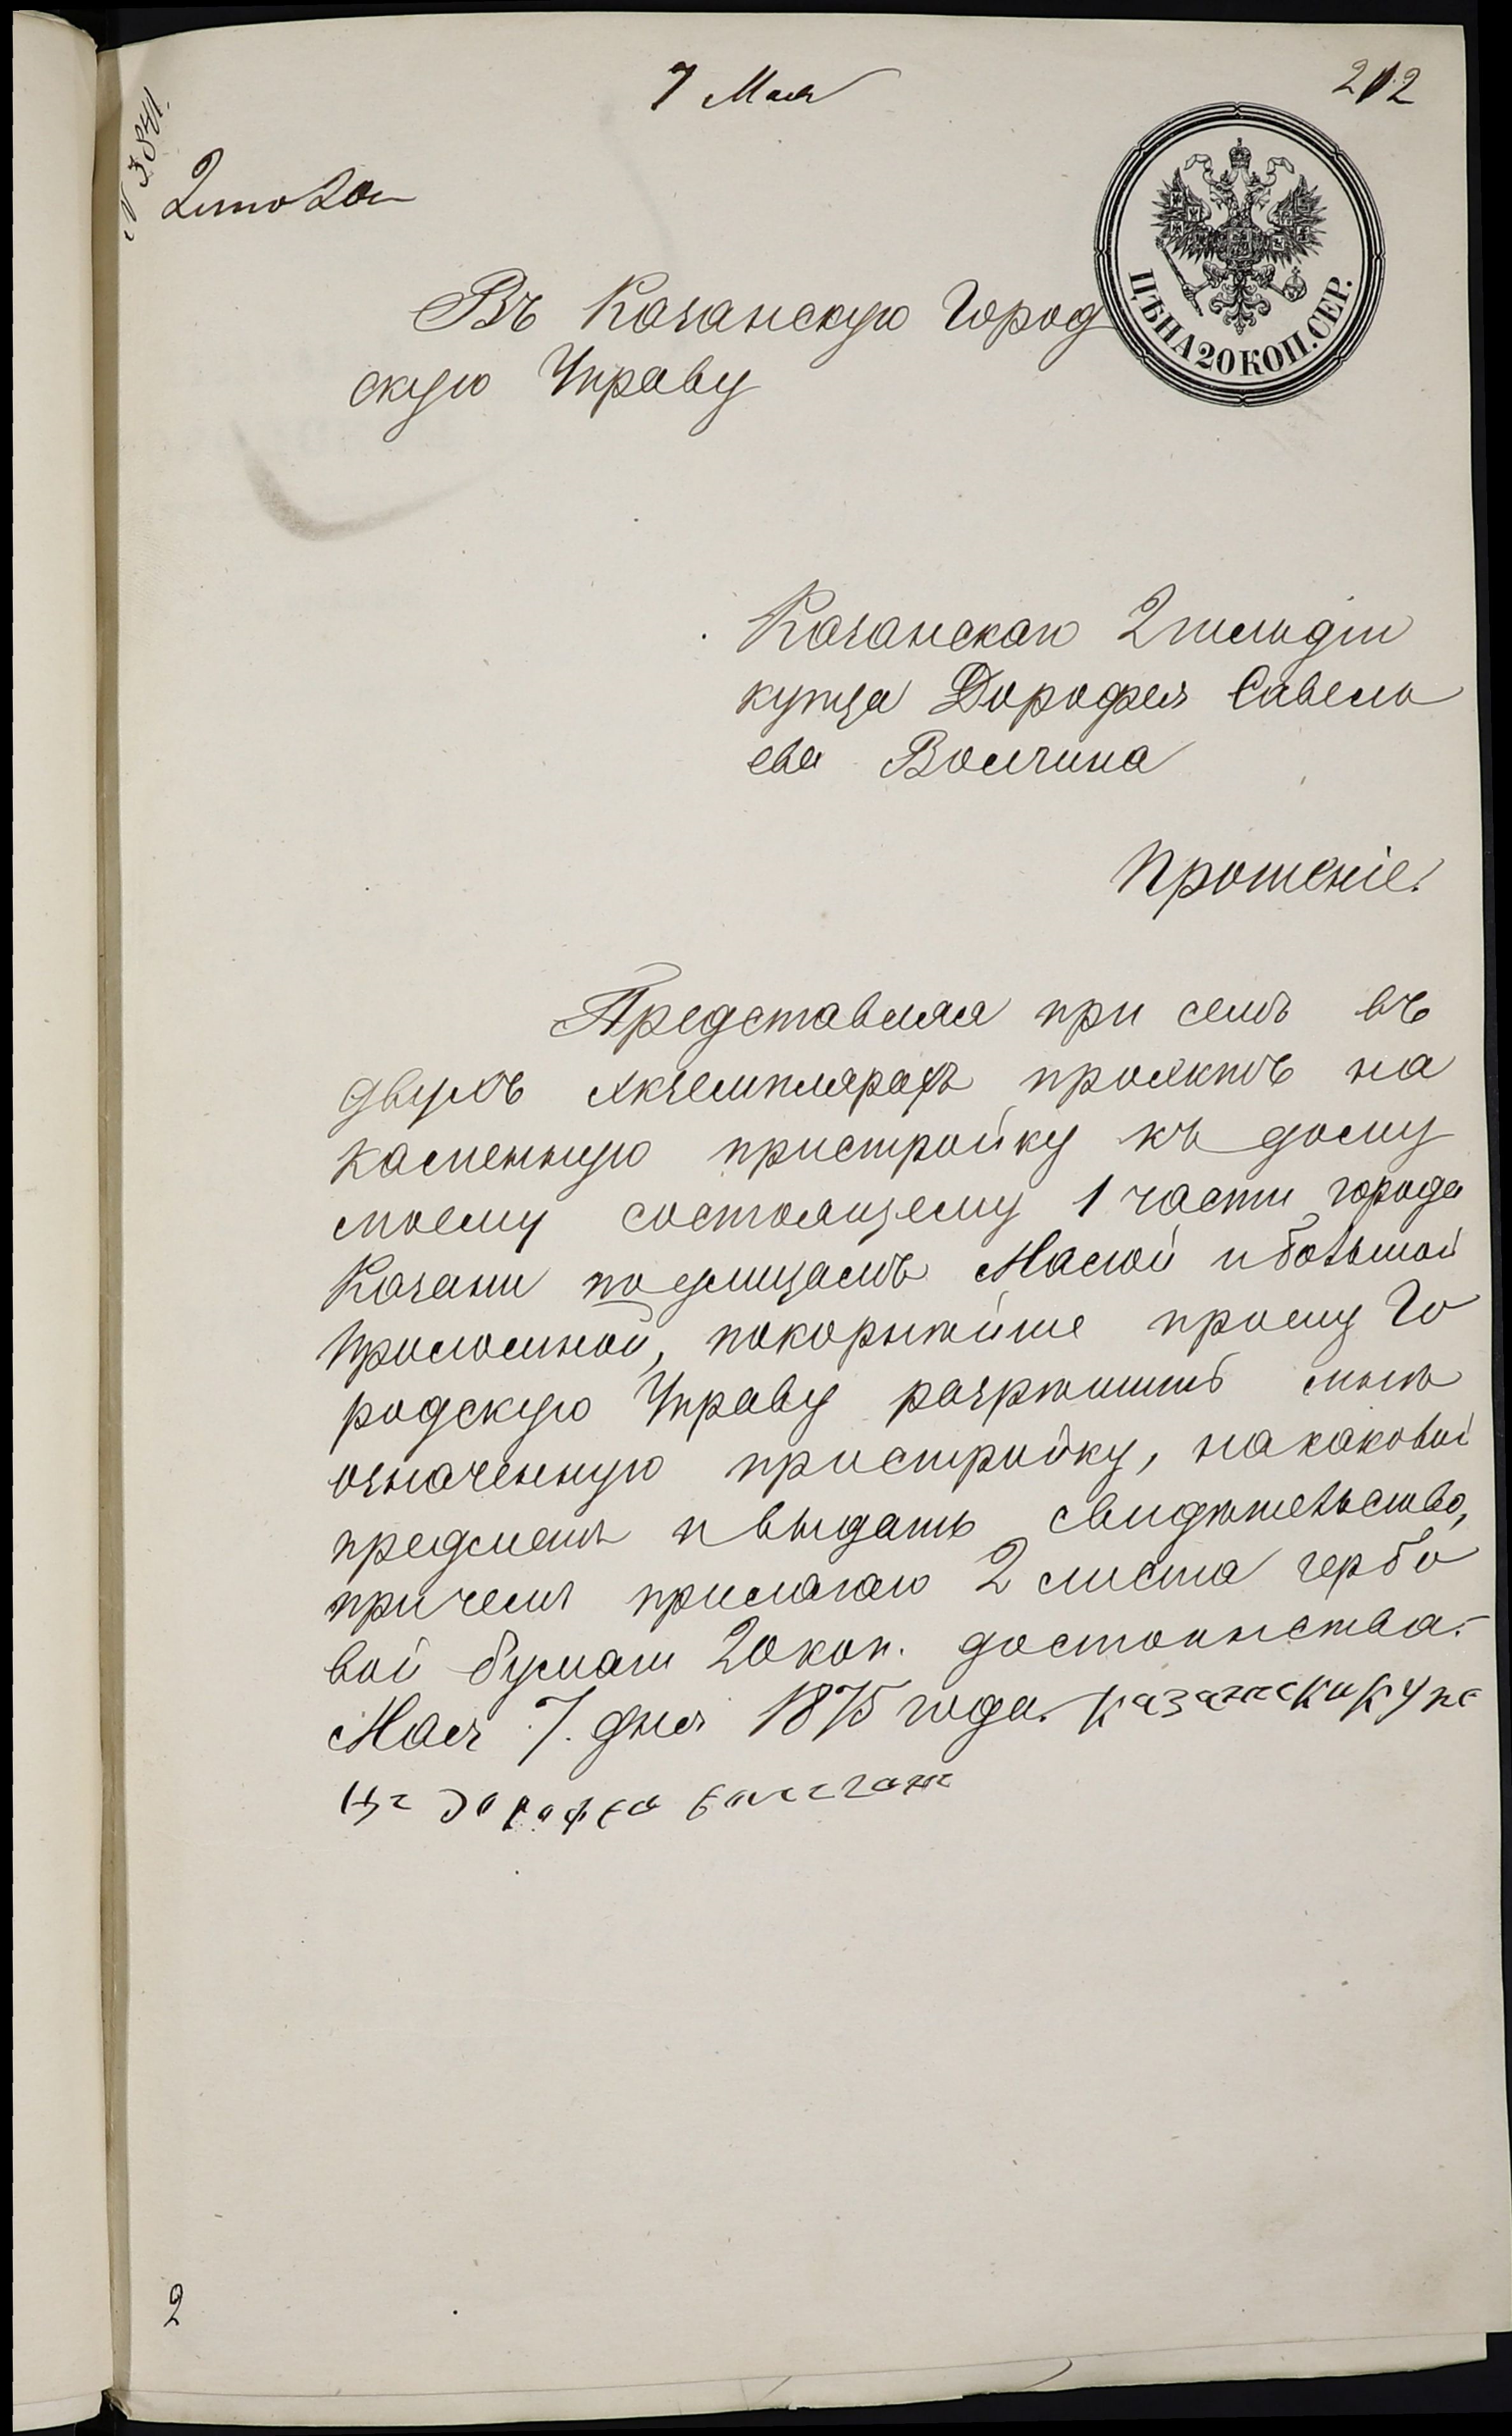 7 Мая
212
N 3841.
2 по 20 к
ЦѢНА 20 КОП. СЕР.
Въ Казанскую Город
скую Управу
Казанскаго 2 гильдіи
купца Дорофея Савель
ева Волчина
Прошеніе.
Представляя при семъ въ
двухъ экземплярахъ проэктъ на
каменную пристройку къ дому
моему состоящему 1 части города
Казани по улицамъ Малой и большой
Проломной, покорнѣйше прошу Го
родскую Управу разрѣшить мнѣ
означенную пристройку, на каковой
предметъ и выдать свидѣтельство,
при чемъ прилагаю 2 листа гербо
вой бумаги 20 коп. достоинства.-
Мая 7. дня 1875 года. казански купе
ца дорофеа
2